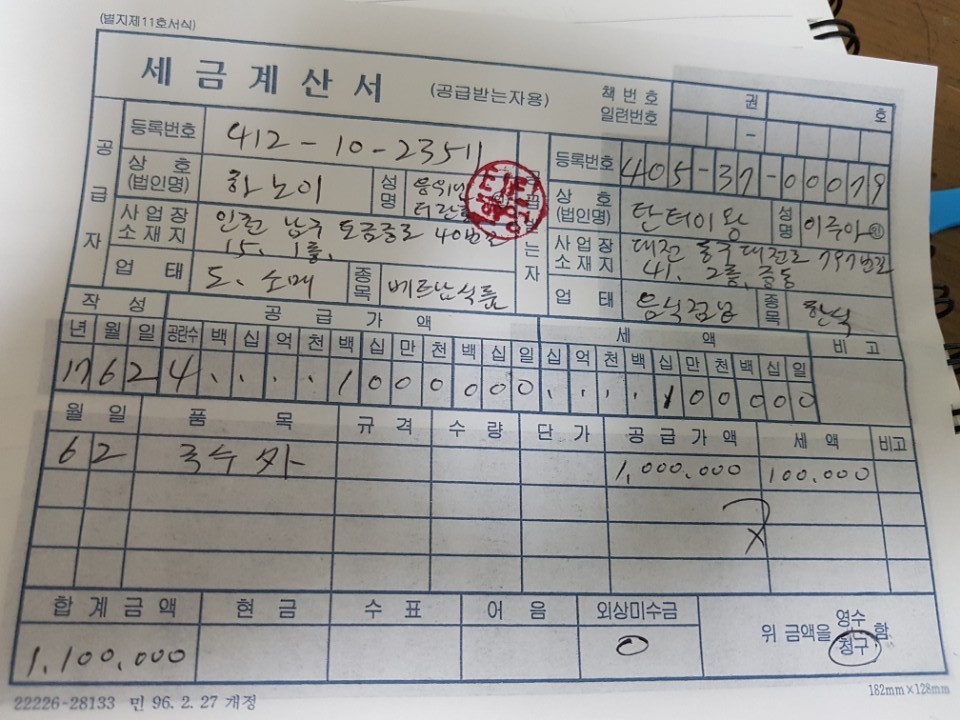 (별지제11호서식)
세금계산서 (공급받는자용) 책번호 권 호
일련번호 -
공급자 등록번호 412-10-23511
상호(법인명) 하노이 성명
사업장소재지 인천 남구 40번길
15, 1층,
업태 도.소매 종목 베트남식품
공급받는자 등록번호 405-37-00079
상호(법인명) 탄터이왕 성명 이주아 ㊞
사업장소재지 대전 동구 대전로 797번길
41, 2층, 중동
업태 음식점 종목 한식
작성 공급가액 세액 비고
년 월 일 공란수 백 십 억 천 백 십 만 천 백 십 일 십 억 천 백 십 만 천 백 십 일
17 6 2 4 1 0 0 0 0 0 0 1 0 0 0 0 0
월 일 품목 규격 수량 단가 공급가액 세액 비고
6 2 국수 외 1,000.000 100.000
합계금액 현금 수표 어음 외상미수금 위 금액을 영수 청구 함
1,100,000 0
22226-28133 민 96. 2. 27 개정
182mm×128mm